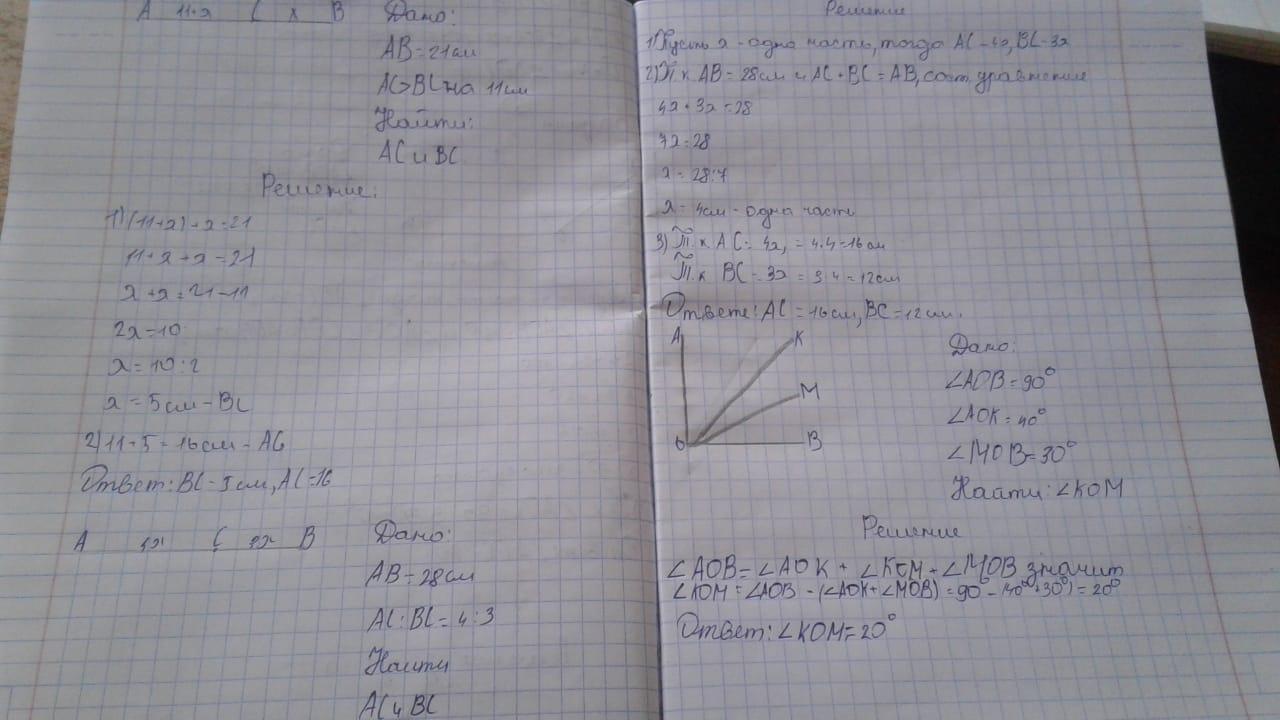 A 11+x C x B
Дано:
AB=21см
AC>BC на 11см
Найти:
AC и BC
Решение:
1)(11+x)+x=21
11+x+x=21
x+x=21-11
2x=10
x=10:2
x=5см-BC
2)11+5=16см-AC
Ответ: BC-5см, AC=16
A 4x C 3x B
Дано:
AB=28см
AC:BC=4:3
Найти
AC и BC
Решение
1)Пусть x-одна часть, тогда AC-4x, BC-3x
2)Т.к AB=28см и AC+BC=AB, сост. уравнение
4x+3x=28
7x=28
x=28:7
x=4см-одна часть
3)Т.к AC=4x,=4·4=16см
Т.к BC=3x=3·4=12см
Ответ: AC=16см, BC=12см.
A K
M
O B
Дано:
∠AOB=90°
∠AOK=40°
∠MOB=30°
Найти: ∠KOM
Решение
∠AOB=∠AOK+∠KOM+∠MOB значит
∠KOM=∠AOB-(∠AOK+∠MOB)=90°-(40°+30°)=20°
Ответ: ∠KOM=20°